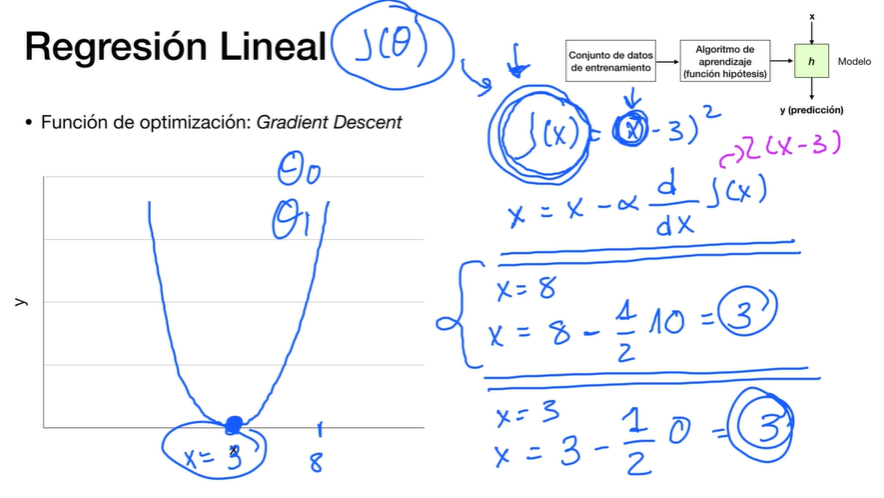 Regresión Lineal J(θ)
Conjunto de datos
de entrenamiento
Algoritmo de
aprendizaje
(función hipótesis)
x
h
Modelo
y (predicción)
• Función de optimización: Gradient Descent
θ0
θ1
y
x
x = 3
8
J(x) = (x - 3)²
→ 2(x-3)
x = x - α d/dx J(x)
α
x = 8
x = 8 - 1/2 10 = 3
x = 3
x = 3 - 1/2 0 = 3